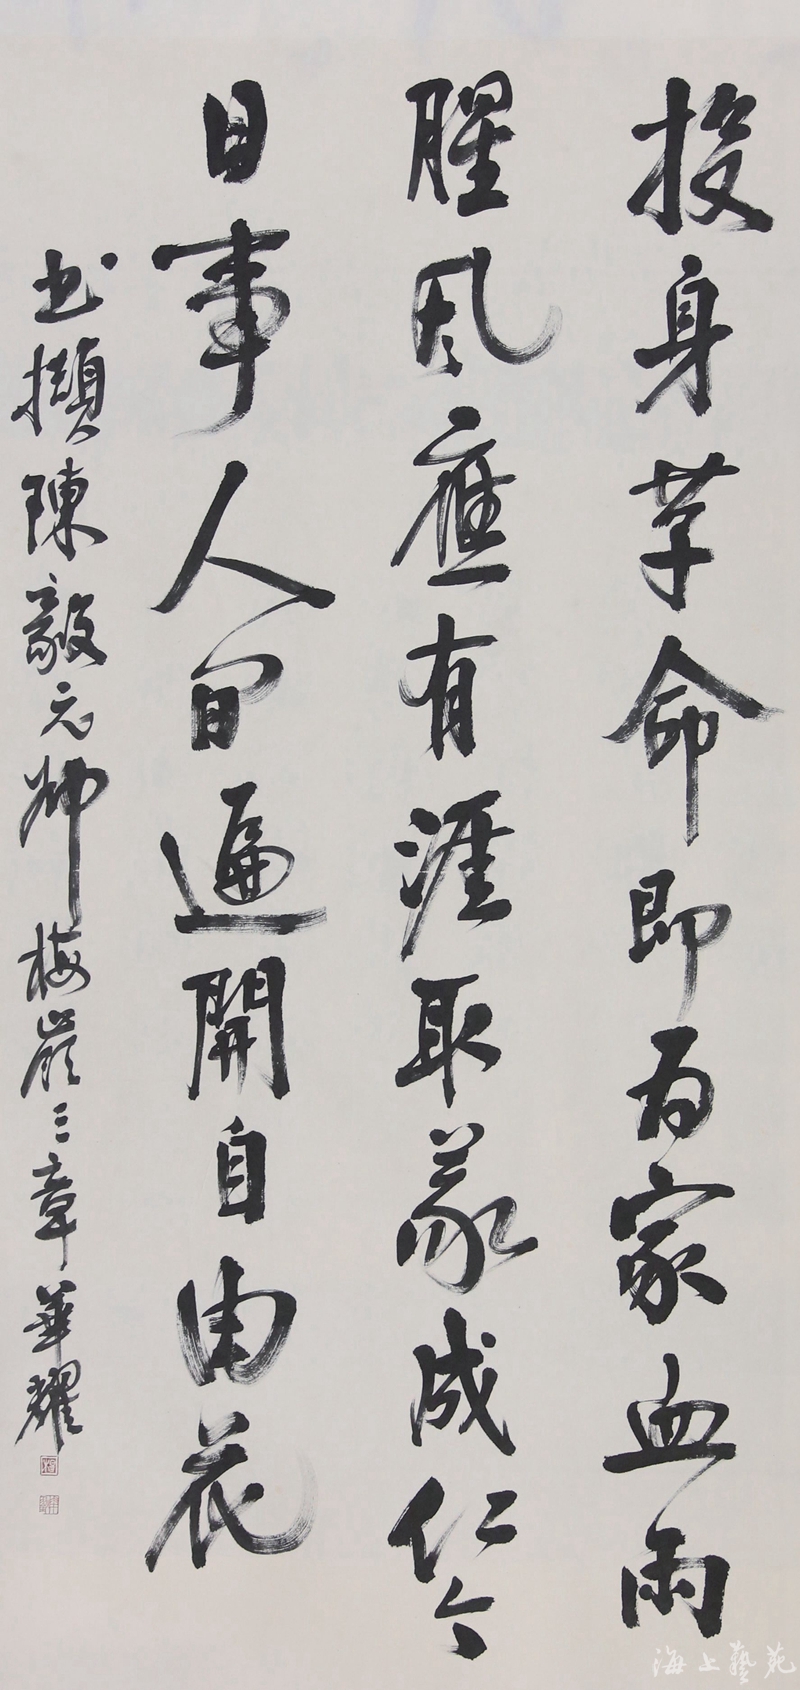 投身革命即为家血雨
腥风應有涯取義成仁今
日事人间遍開自由花
书撷陳毅元帅梅嶺三章華耀
海上藝苑